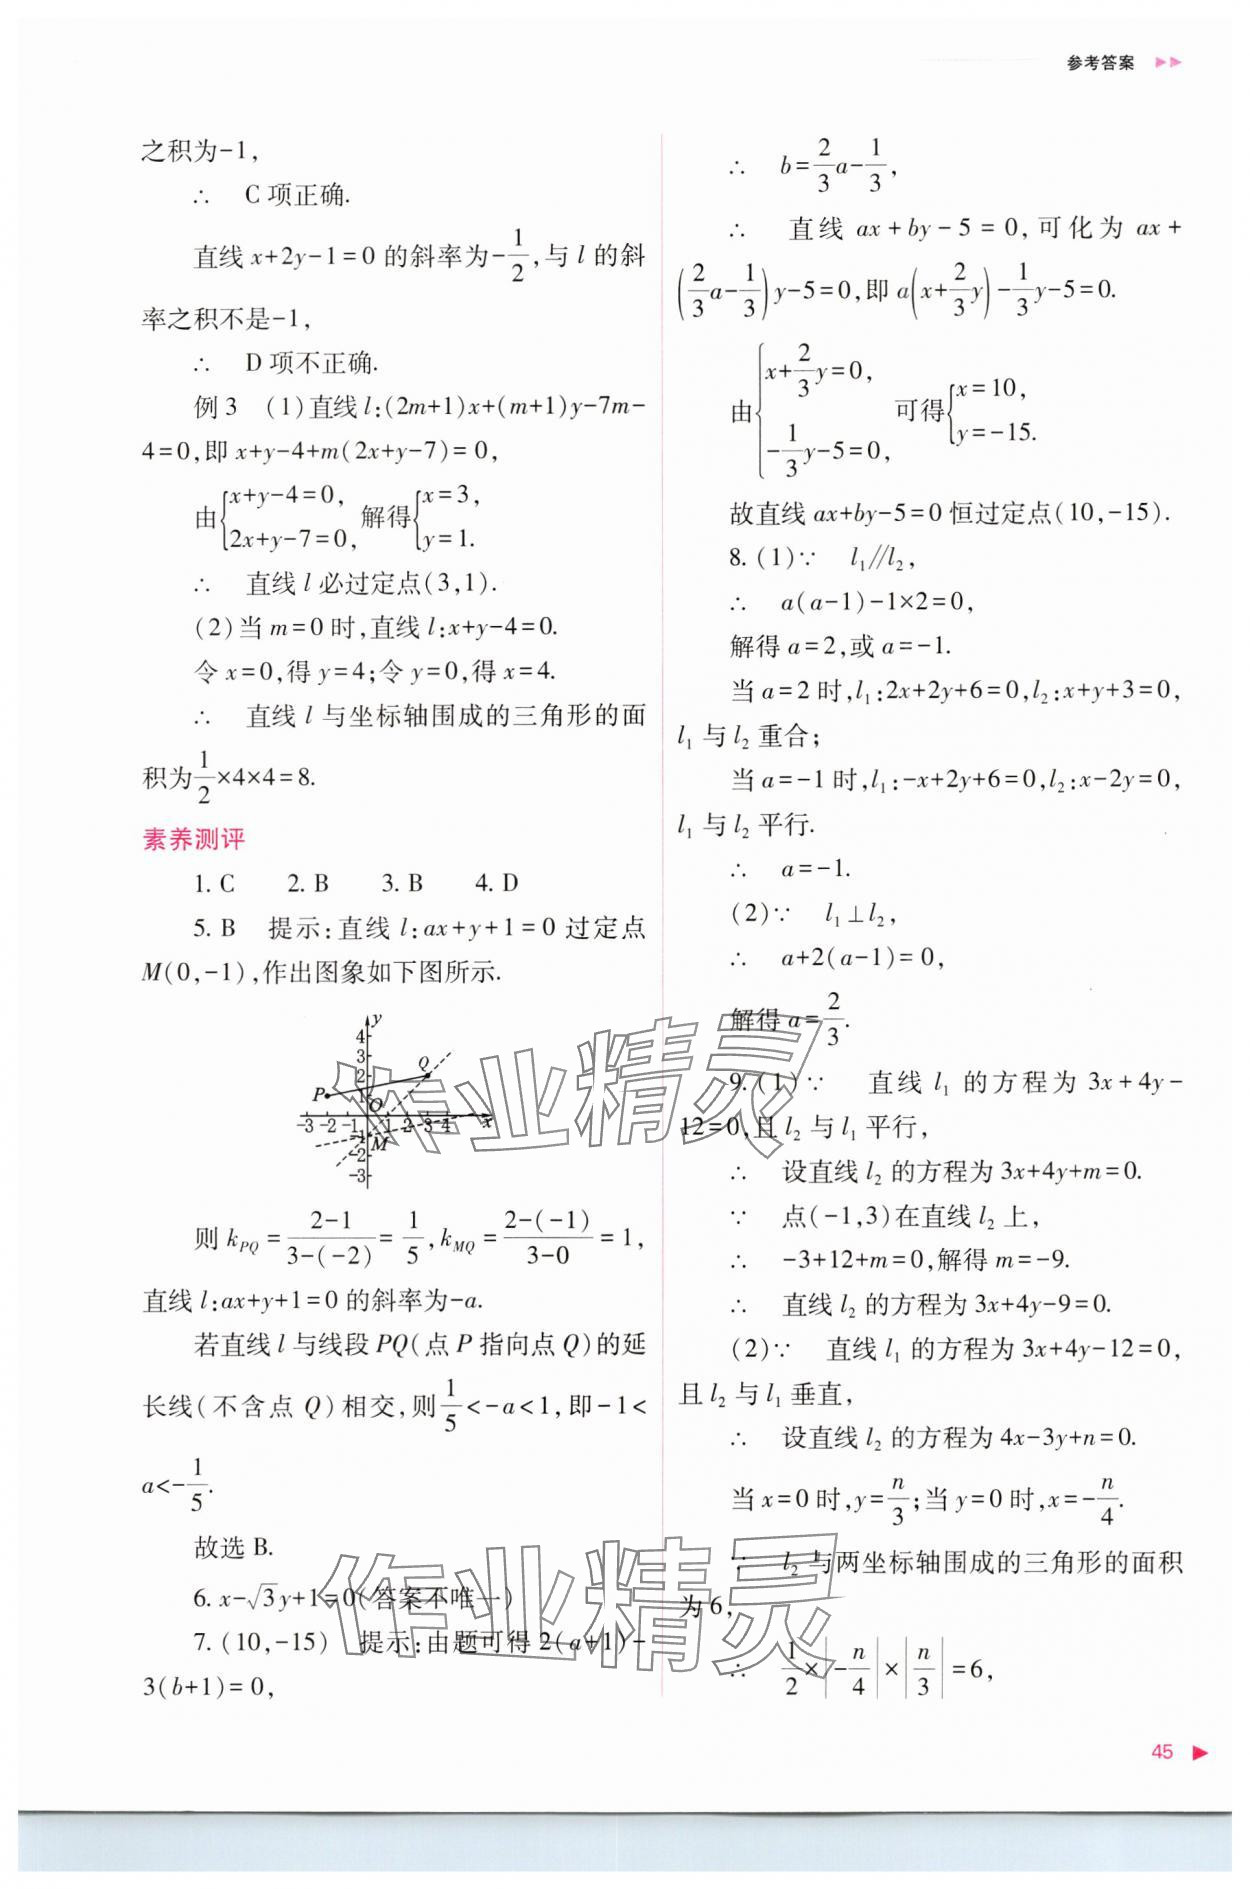 参考答案 ▶▶
之积为-1,
∴ C 项正确.
直线 x+2y-1=0 的斜率为-1/2,与 l 的斜
率之积不是-1,
∴ D 项不正确.
例 3 (1)直线 l:(2m+1)x+(m+1)y-7m-
4=0,即 x+y-4+m(2x+y-7)=0,
由{x+y-4=0, 2x+y-7=0, 解得{x=3, y=1.
∴ 直线 l 必过定点(3,1).
(2)当 m=0 时,直线 l:x+y-4=0.
令 x=0,得 y=4;令 y=0,得 x=4.
∴ 直线 l 与坐标轴围成的三角形的面
积为1/2×4×4=8.
素养测评
1. C 2. B 3. B 4. D
5. B 提示:直线 l:ax+y+1=0 过定点
M(0,-1),作出图象如下图所示.
y
4
3
2
1
P
Q
O
-3 -2 -1
1 2 3 4 x
-1
M
-2
-3
则 k_PQ = (2-1)/(3-(-2)) = 1/5, k_MQ = (2-(-1))/(3-0) = 1,
直线 l:ax+y+1=0 的斜率为-a.
若直线 l 与线段 PQ(点 P 指向点 Q)的延
长线(不含点 Q)相交,则1/5<-a<1,即-1<
a<-1/5.
故选 B.
6. x-√3y+1=0(答案不唯一)
7. (10,-15) 提示:由题可得 2(a+1)-
3(b+1)=0,
∴ b=2/3a-1/3,
∴ 直线 ax+by-5=0,可化为 ax+
(2/3a-1/3)y-5=0,即 a(x+2/3y)-1/3y-5=0.
由{x+2/3y=0, -1/3y-5=0, 可得{x=10, y=-15.
故直线 ax+by-5=0 恒过定点(10,-15).
8. (1)∵ l₁∥l₂,
∴ a(a-1)-1×2=0,
解得 a=2,或 a=-1.
当 a=2 时,l₁:2x+2y+6=0,l₂:x+y+3=0,
l₁ 与 l₂ 重合;
当 a=-1 时,l₁:-x+2y+6=0,l₂:x-2y=0,
l₁ 与 l₂ 平行.
∴ a=-1.
(2)∵ l₁⊥l₂,
∴ a+2(a-1)=0,
解得 a=2/3.
9. (1)∵ 直线 l₁ 的方程为 3x+4y-
12=0,且 l₂ 与 l₁ 平行,
∴ 设直线 l₂ 的方程为 3x+4y+m=0.
∵ 点(-1,3)在直线 l₂ 上,
∴ -3+12+m=0,解得 m=-9.
∴ 直线 l₂ 的方程为 3x+4y-9=0.
(2)∵ 直线 l₁ 的方程为 3x+4y-12=0,
且 l₂ 与 l₁ 垂直,
∴ 设直线 l₂ 的方程为 4x-3y+n=0.
当 x=0 时,y=n/3;当 y=0 时,x=-n/4.
∵ l₂ 与两坐标轴围成的三角形的面积
为 6,
∴ 1/2×|-n/4|×|n/3|=6,
作业精灵
作业精灵
45 ▶